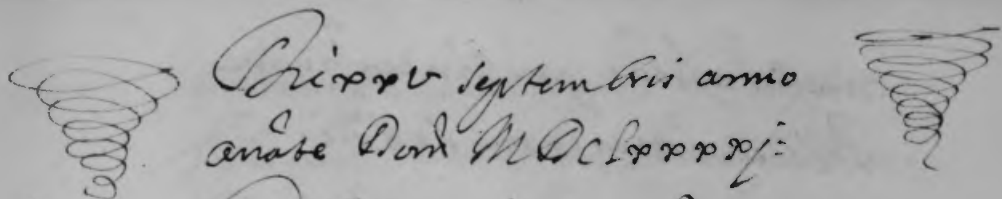 Die xxv septembris anno
a nāte Dom̄ MDClxxxxj: